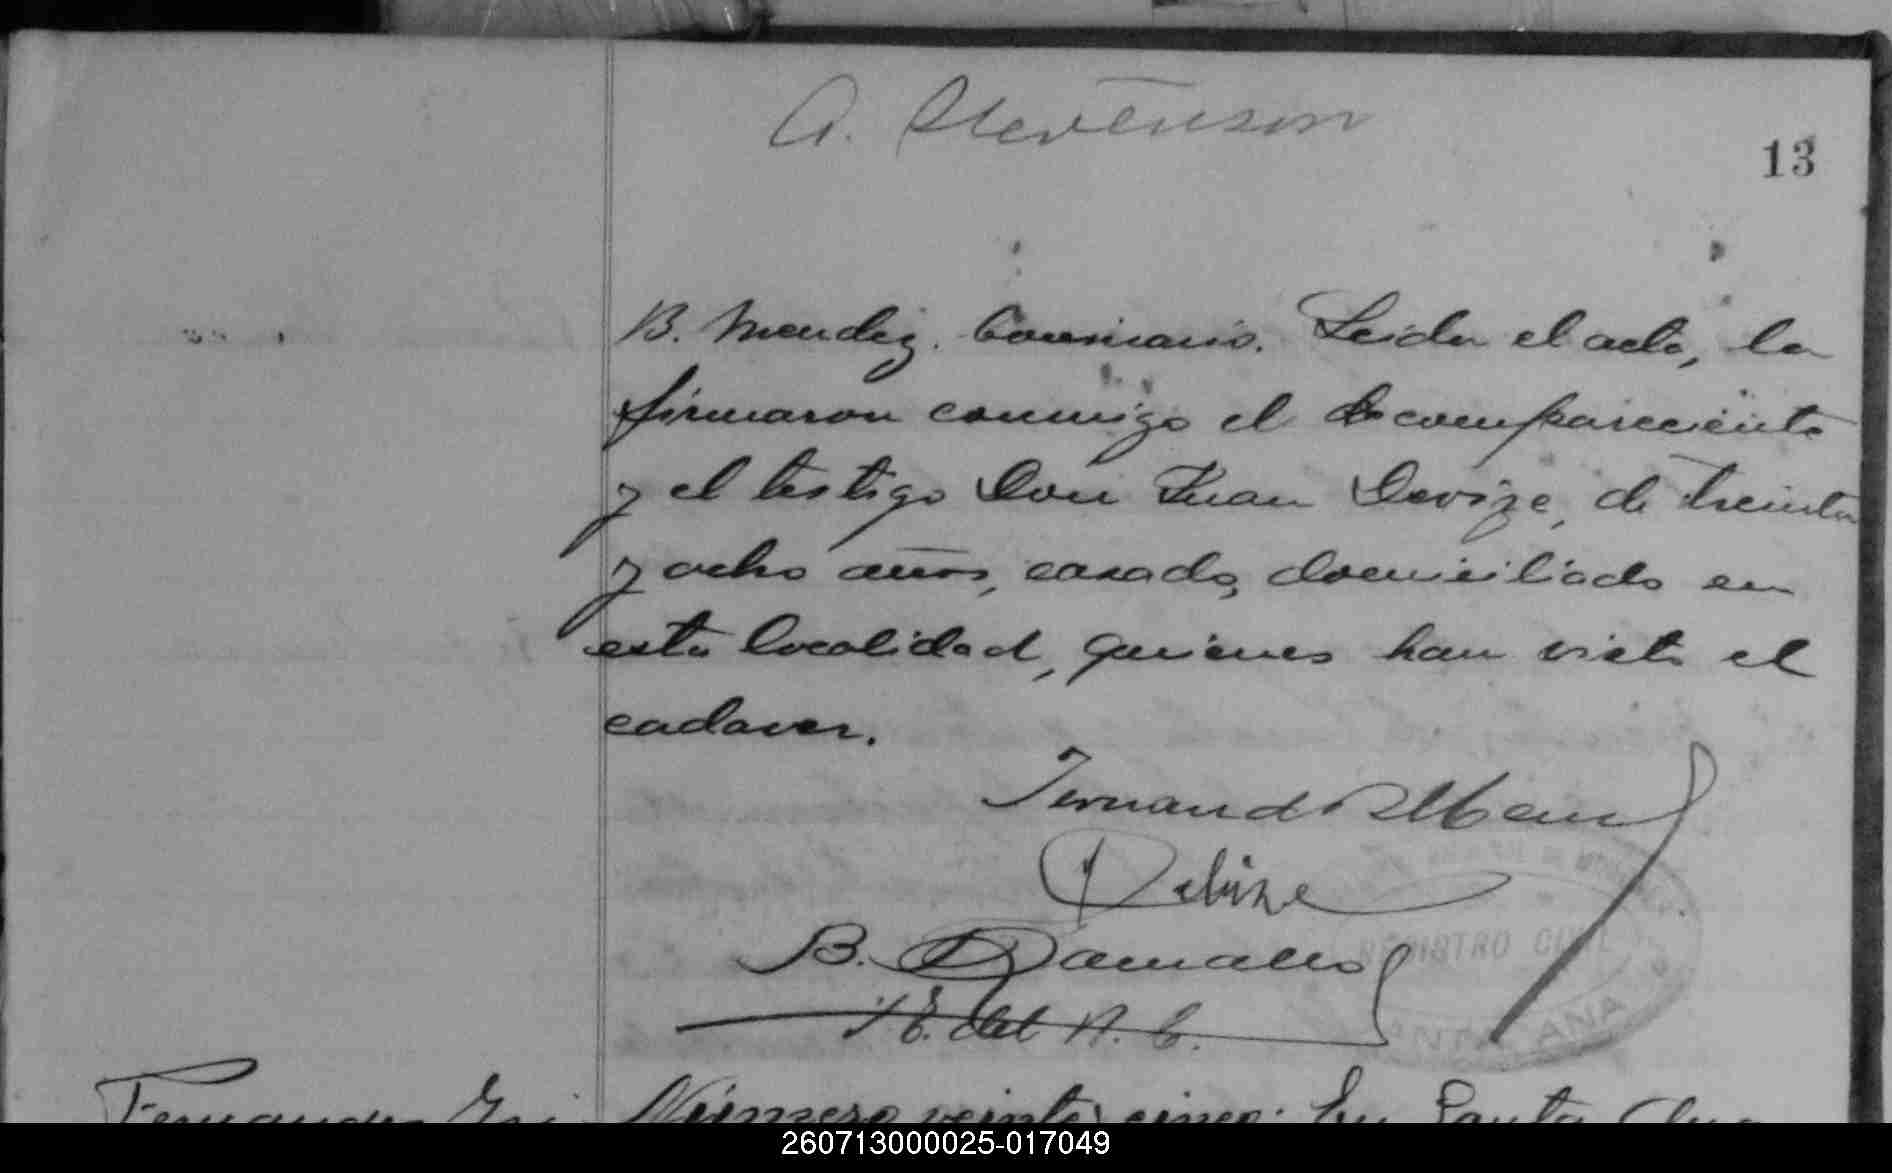 A. Stevenson
13
B. Mendez. Comisario. Leida el acta, la
firmaron conmigo el compareciente
y el testigo Don Juan Devize, de treinta
y ocho años, casado, domiciliado en
esta localidad, quienes han visto el
cadaver.
Fernando
Debize
B.
E. del R. C.
REGISTRO CIVIL
Número veinte cinco: En Santa Ana
260713000025-017049